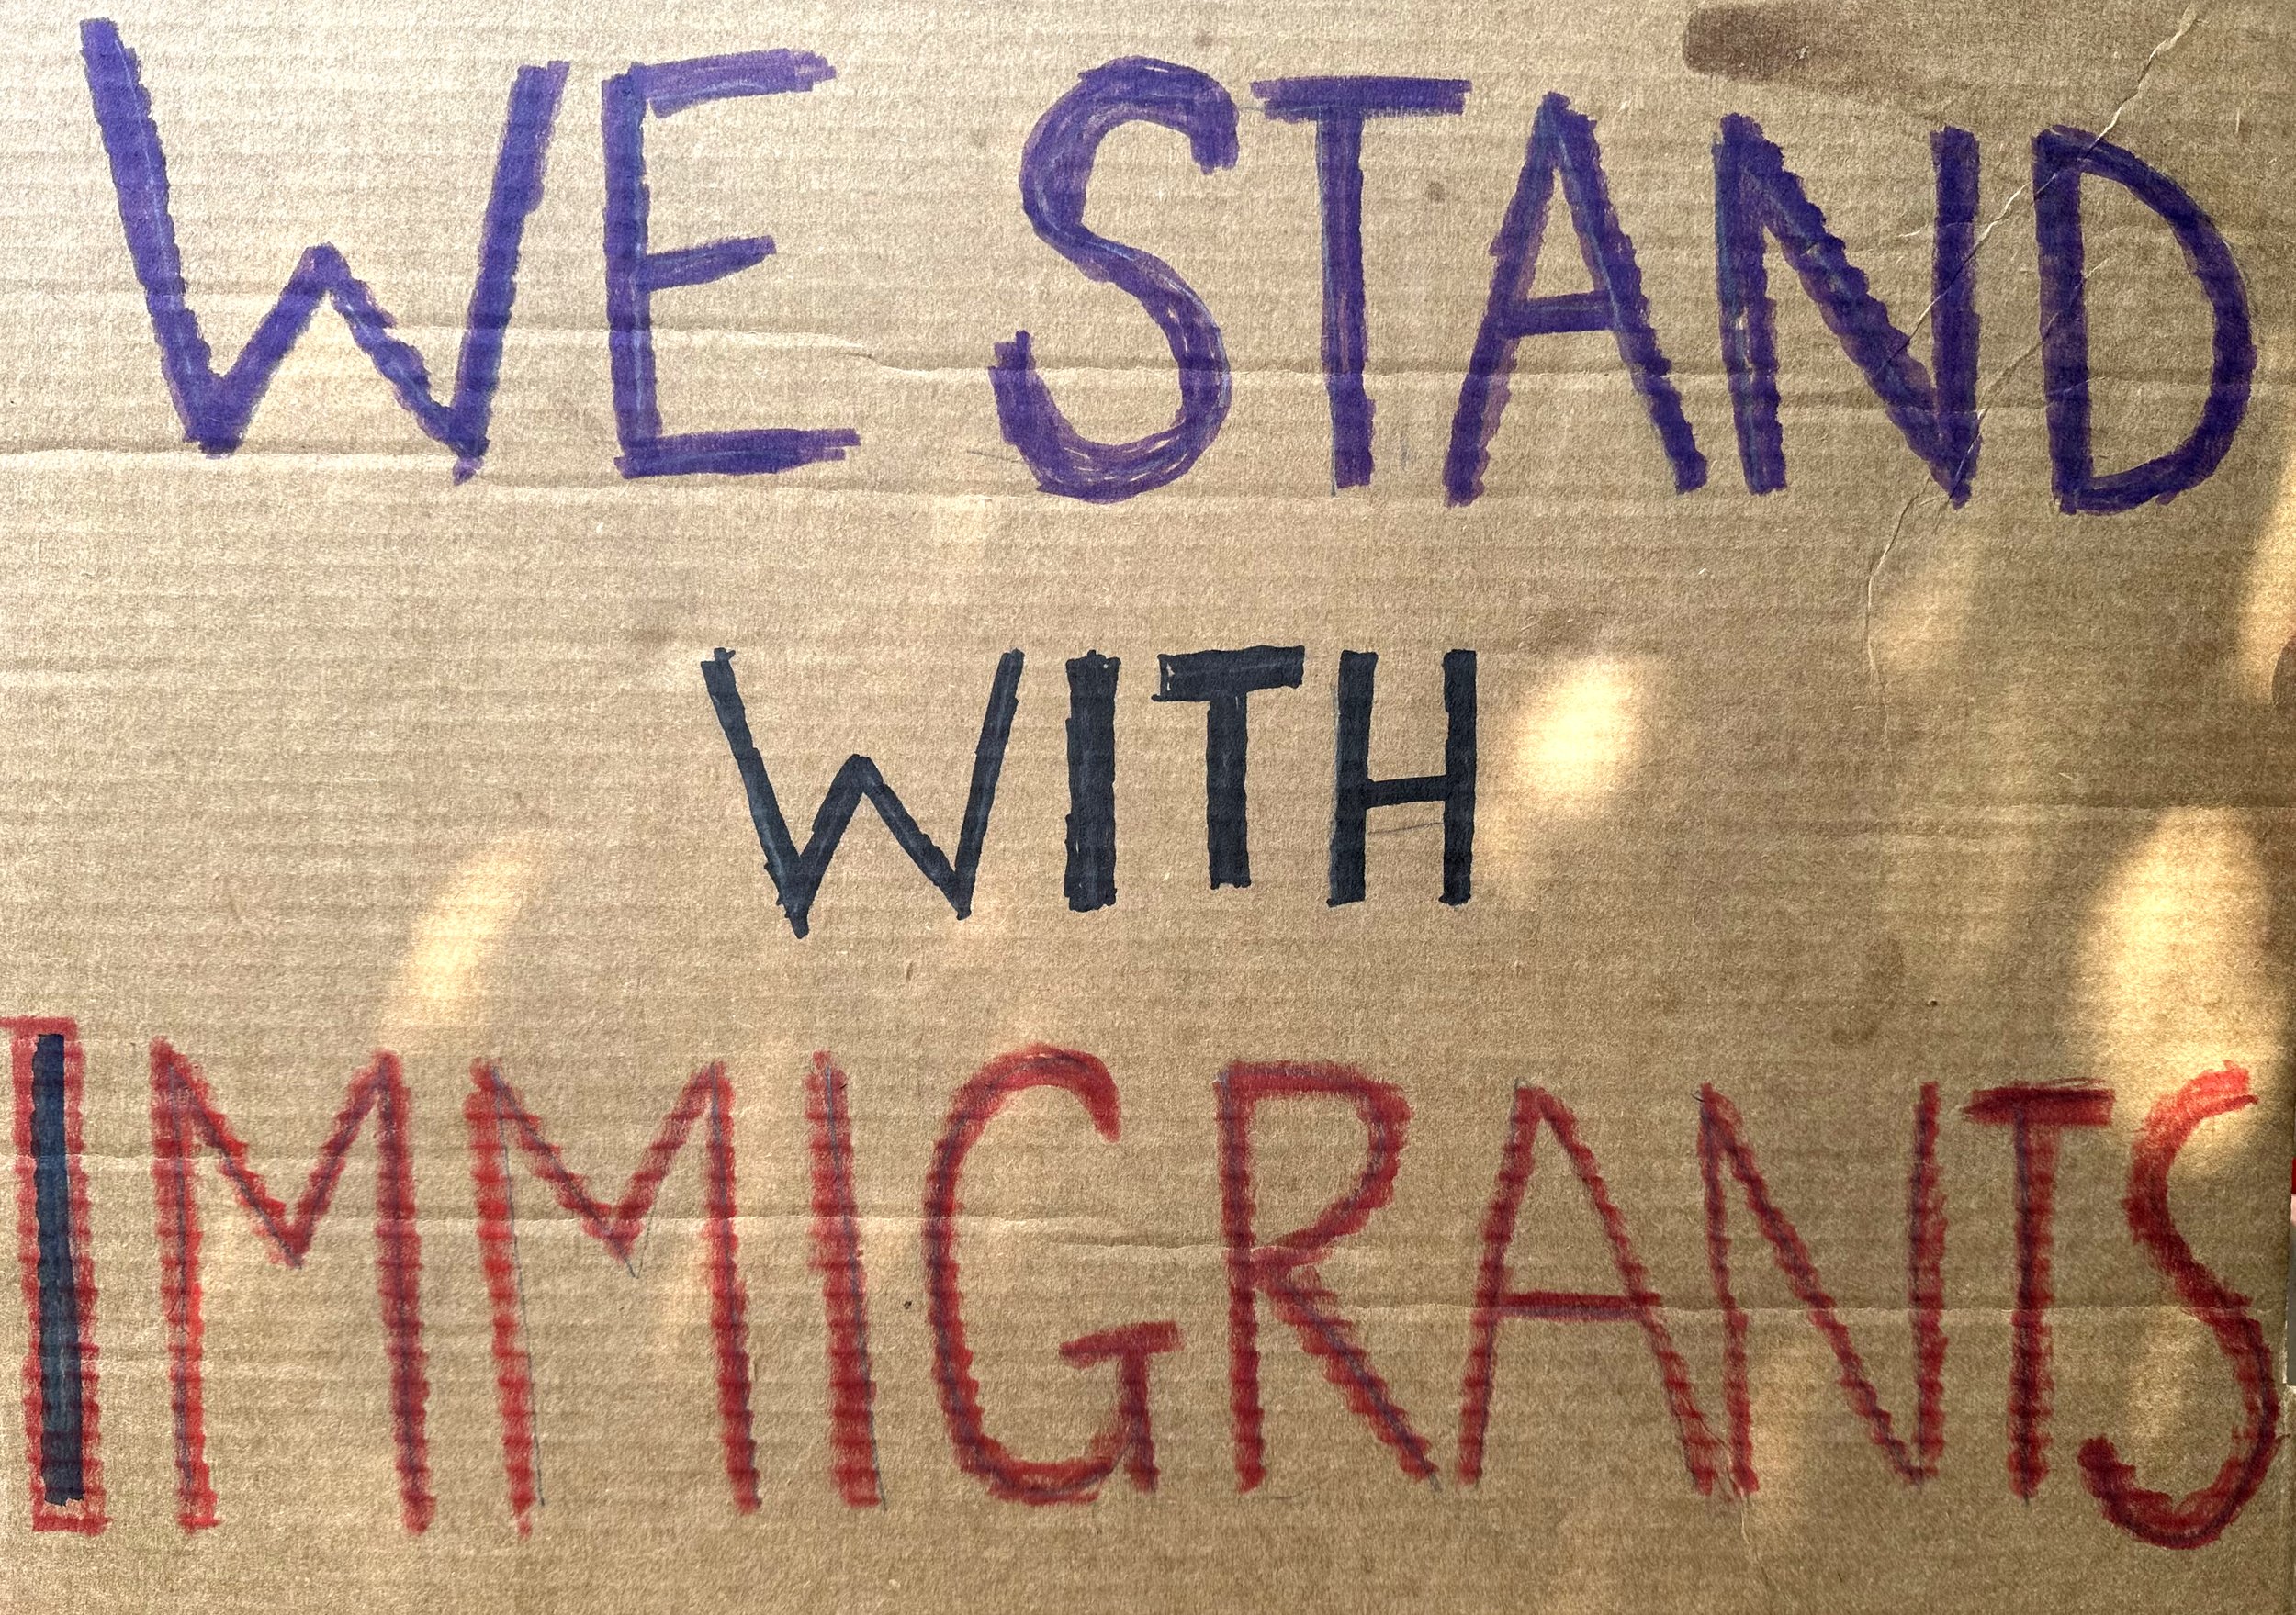 WE STAND
WITH
IMMIGRANTS